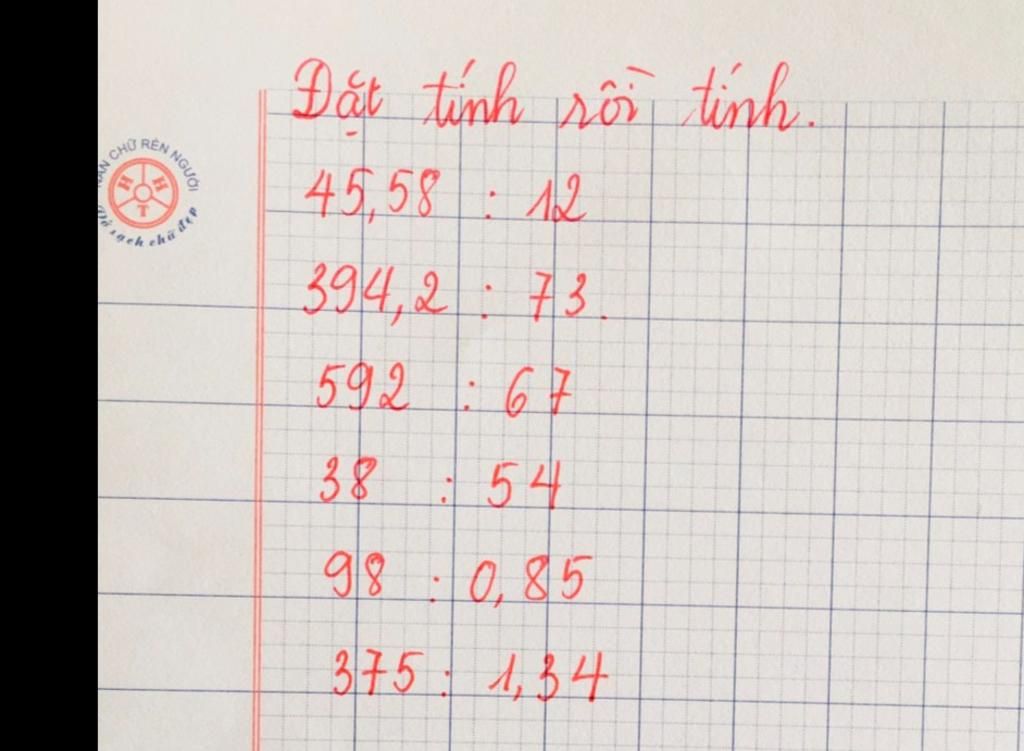 Đặt tính rồi tính.
45,58 : 12
394,2 : 73.
592 : 67
38 : 54
98 : 0,85
375 : 1,34
CHỮ RÈN NGƯỜI
sạch chữ đẹp
H H
T